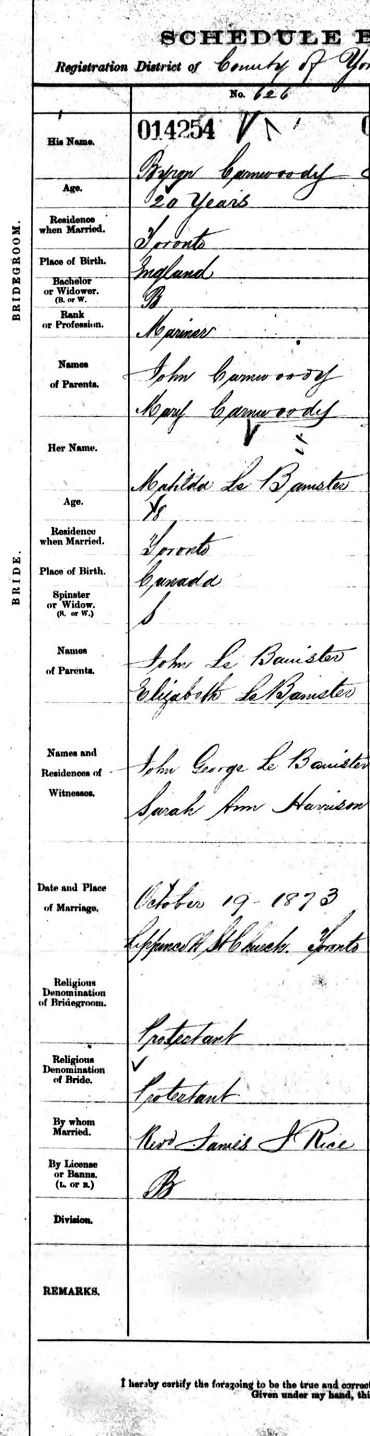 SCHEDULE B
Registration District of County of Yor
No. 626
BRIDEGROOM.
His Name.
014254
Byron Carnwoody
Age.
20 Years
Residence when Married.
Toronto
Place of Birth.
England
Bachelor or Widower. (B. or W.
B
Rank or Profession.
Mariner
Names of Parents.
John Carnwoody
Mary Carnwoody
BRIDE.
Her Name.
Matilda Le Banister
Age.
18
Residence when Married.
Toronto
Place of Birth.
Canada
Spinster or Widow. (S. or W.)
S
Names of Parents.
John Le Banister
Elizabeth Le Banister
Names and Residences of Witnesses.
John George Le Banister
Sarah Ann Harrison
Date and Place of Marriage.
October 19 - 1873
Lippincott St Church. Toronto
Religious Denomination of Bridegroom.
Protestant
Religious Denomination of Bride.
Protestant
By whom Married.
Revd James J Rice
By License or Banns. (L. or B.)
B
Division.
REMARKS.
I hereby certify the foregoing to be the true and correct
Given under my hand, thi